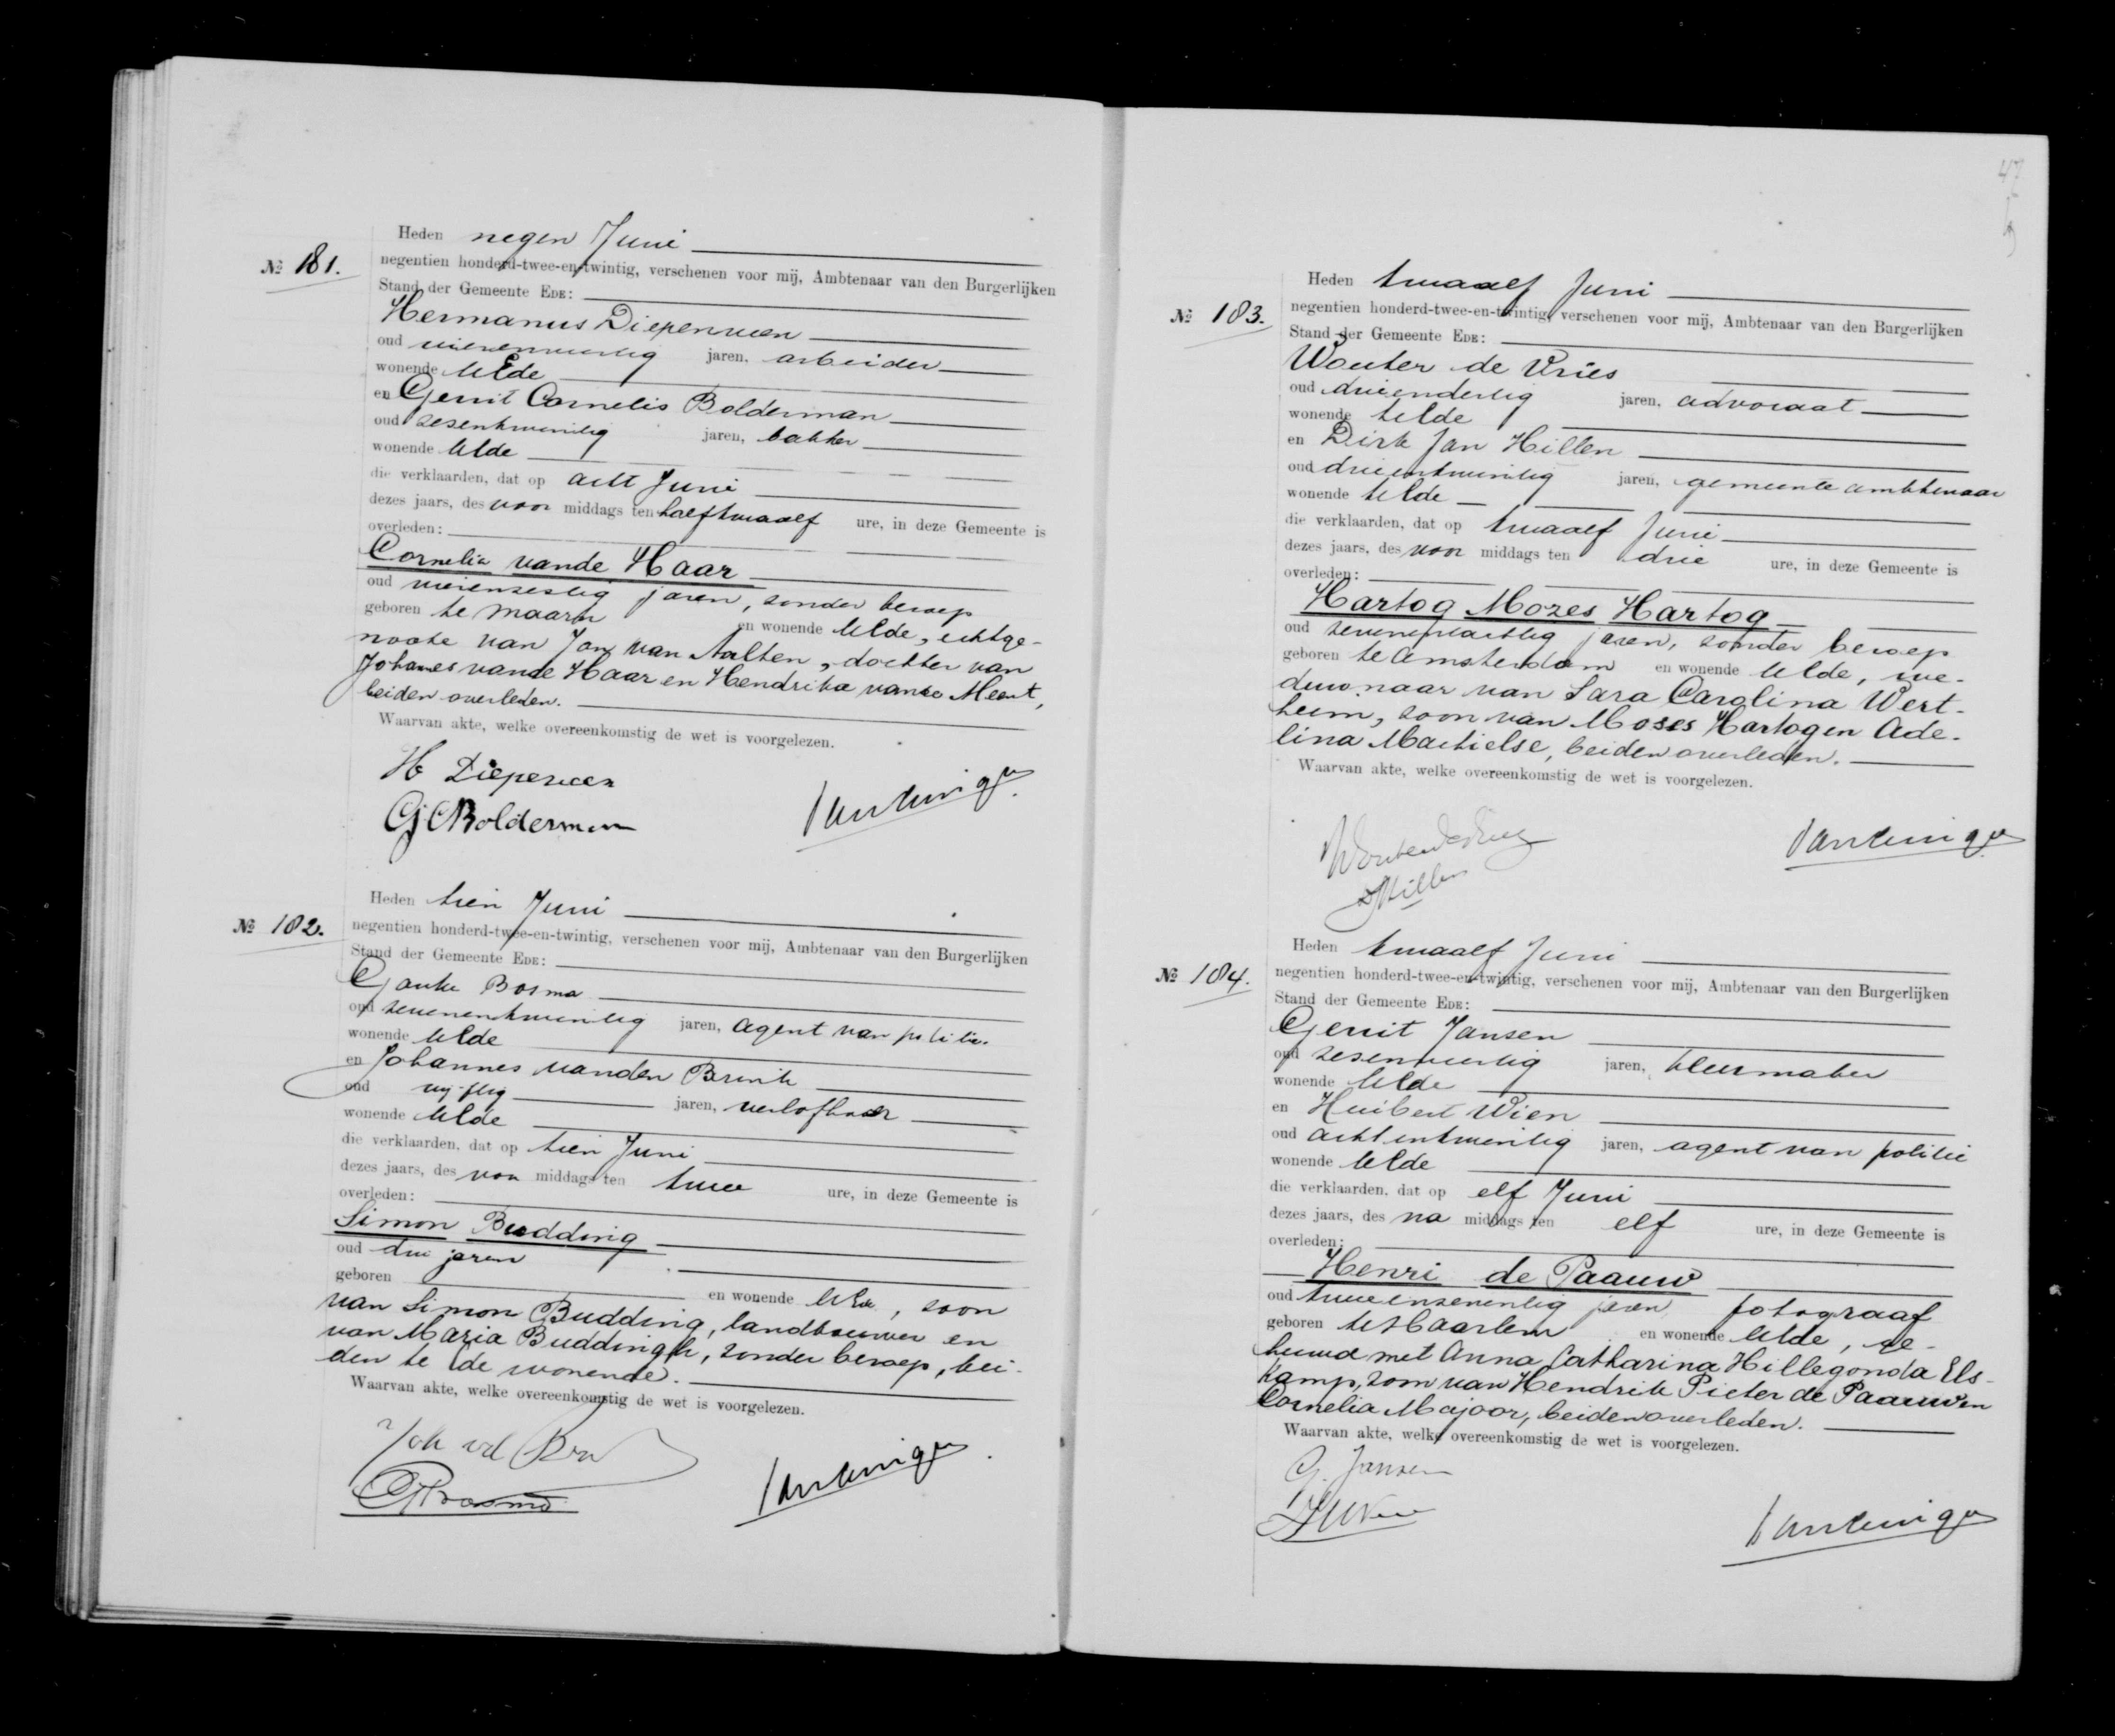 Heden negen Juni
№ 181.
negentien honderd-twee-en-twintig, verschenen voor mij, Ambtenaar van den Burgerlijken
Stand der Gemeente EDE:
Hermanus Diepenveen
oud vierenveertig jaren, arbeider
wonende te Ede
en Gerrit Cornelis Bolderman
oud zesentwintig jaren, bakker
wonende te Ede
die verklaarden, dat op acht Juni
dezes jaars, des voor middags ten half twaalf ure, in deze Gemeente is
overleden:
Cornelia van de Haar
oud vierenzestig jaren, zonder beroep
geboren te Maarn en wonende te Ede, echtge-
noote van Jan van Aalten, dochter van
Johannes van de Haar en Hendrika van de Meent,
beiden overleden.
Waarvan akte, welke overeenkomstig de wet is voorgelezen.
H Diepeveen
GCBolderman
Heden tien Juni
№ 182.
negentien honderd-twee-en-twintig, verschenen voor mij, Ambtenaar van den Burgerlijken
Stand der Gemeente EDE:
Gauke Bosma
oud zevenentwintig jaren, agent van politie
wonende te Ede
en Johannes van den Brink
oud vijftig jaren, verlofhouder
wonende te Ede
die verklaarden, dat op tien Juni
dezes jaars, des voor middags ten twee ure, in deze Gemeente is
overleden:
Simon Budding
oud drie jaren
geboren en wonende te Ede, zoon
van Simon Budding, landbouwer en
van Maria Buddingh, zonder beroep, bei-
den te Ede wonende.
Waarvan akte, welke overeenkomstig de wet is voorgelezen.
Joh vd Brink
GBosma
47
Heden twaalf Juni
№ 183.
negentien honderd-twee-en-twintig, verschenen voor mij, Ambtenaar van den Burgerlijken
Stand der Gemeente EDE:
Wouter de Vries
oud drieendertig jaren, advocaat
wonende te Ede
en Dirk Jan Hillen
oud drieentwintig jaren, gemeente ambtenaar
wonende te Ede
die verklaarden, dat op twaalf Juni
dezes jaars, des voor middags ten drie ure, in deze Gemeente is
overleden:
Hartog Mozes Hartog
oud jaren, zonder beroep
geboren te Amsterdam en wonende te Ede, we-
duwnaar van Sara Carolina Wert-
heim, zoon van Moses Hartog en Ade-
lina Machielse, beiden overleden.
Waarvan akte, welke overeenkomstig de wet is voorgelezen.
Wouter de Vries
DJHillen
Heden twaalf Juni
№ 184.
negentien honderd-twee-en-twintig, verschenen voor mij, Ambtenaar van den Burgerlijken
Stand der Gemeente EDE:
Gerrit Jansen
oud zesenveertig jaren, kleermaker
wonende te Ede
en Huibert Wien
oud achtentwintig jaren, agent van politie
wonende te Ede
die verklaarden, dat op elf Juni
dezes jaars, des na middags ten elf ure, in deze Gemeente is
overleden:
Henri de Paauw
oud tweeenzeventig jaren fotograaf
geboren te Haarlem en wonende te Ede, ge-
huwd met Anna Catharina Hillegonda Els-
kamp, zoon van Hendrik Pieter de Paauw en
Cornelia Majoor, beiden overleden.
Waarvan akte, welke overeenkomstig de wet is voorgelezen.
G. Jansen
HWien